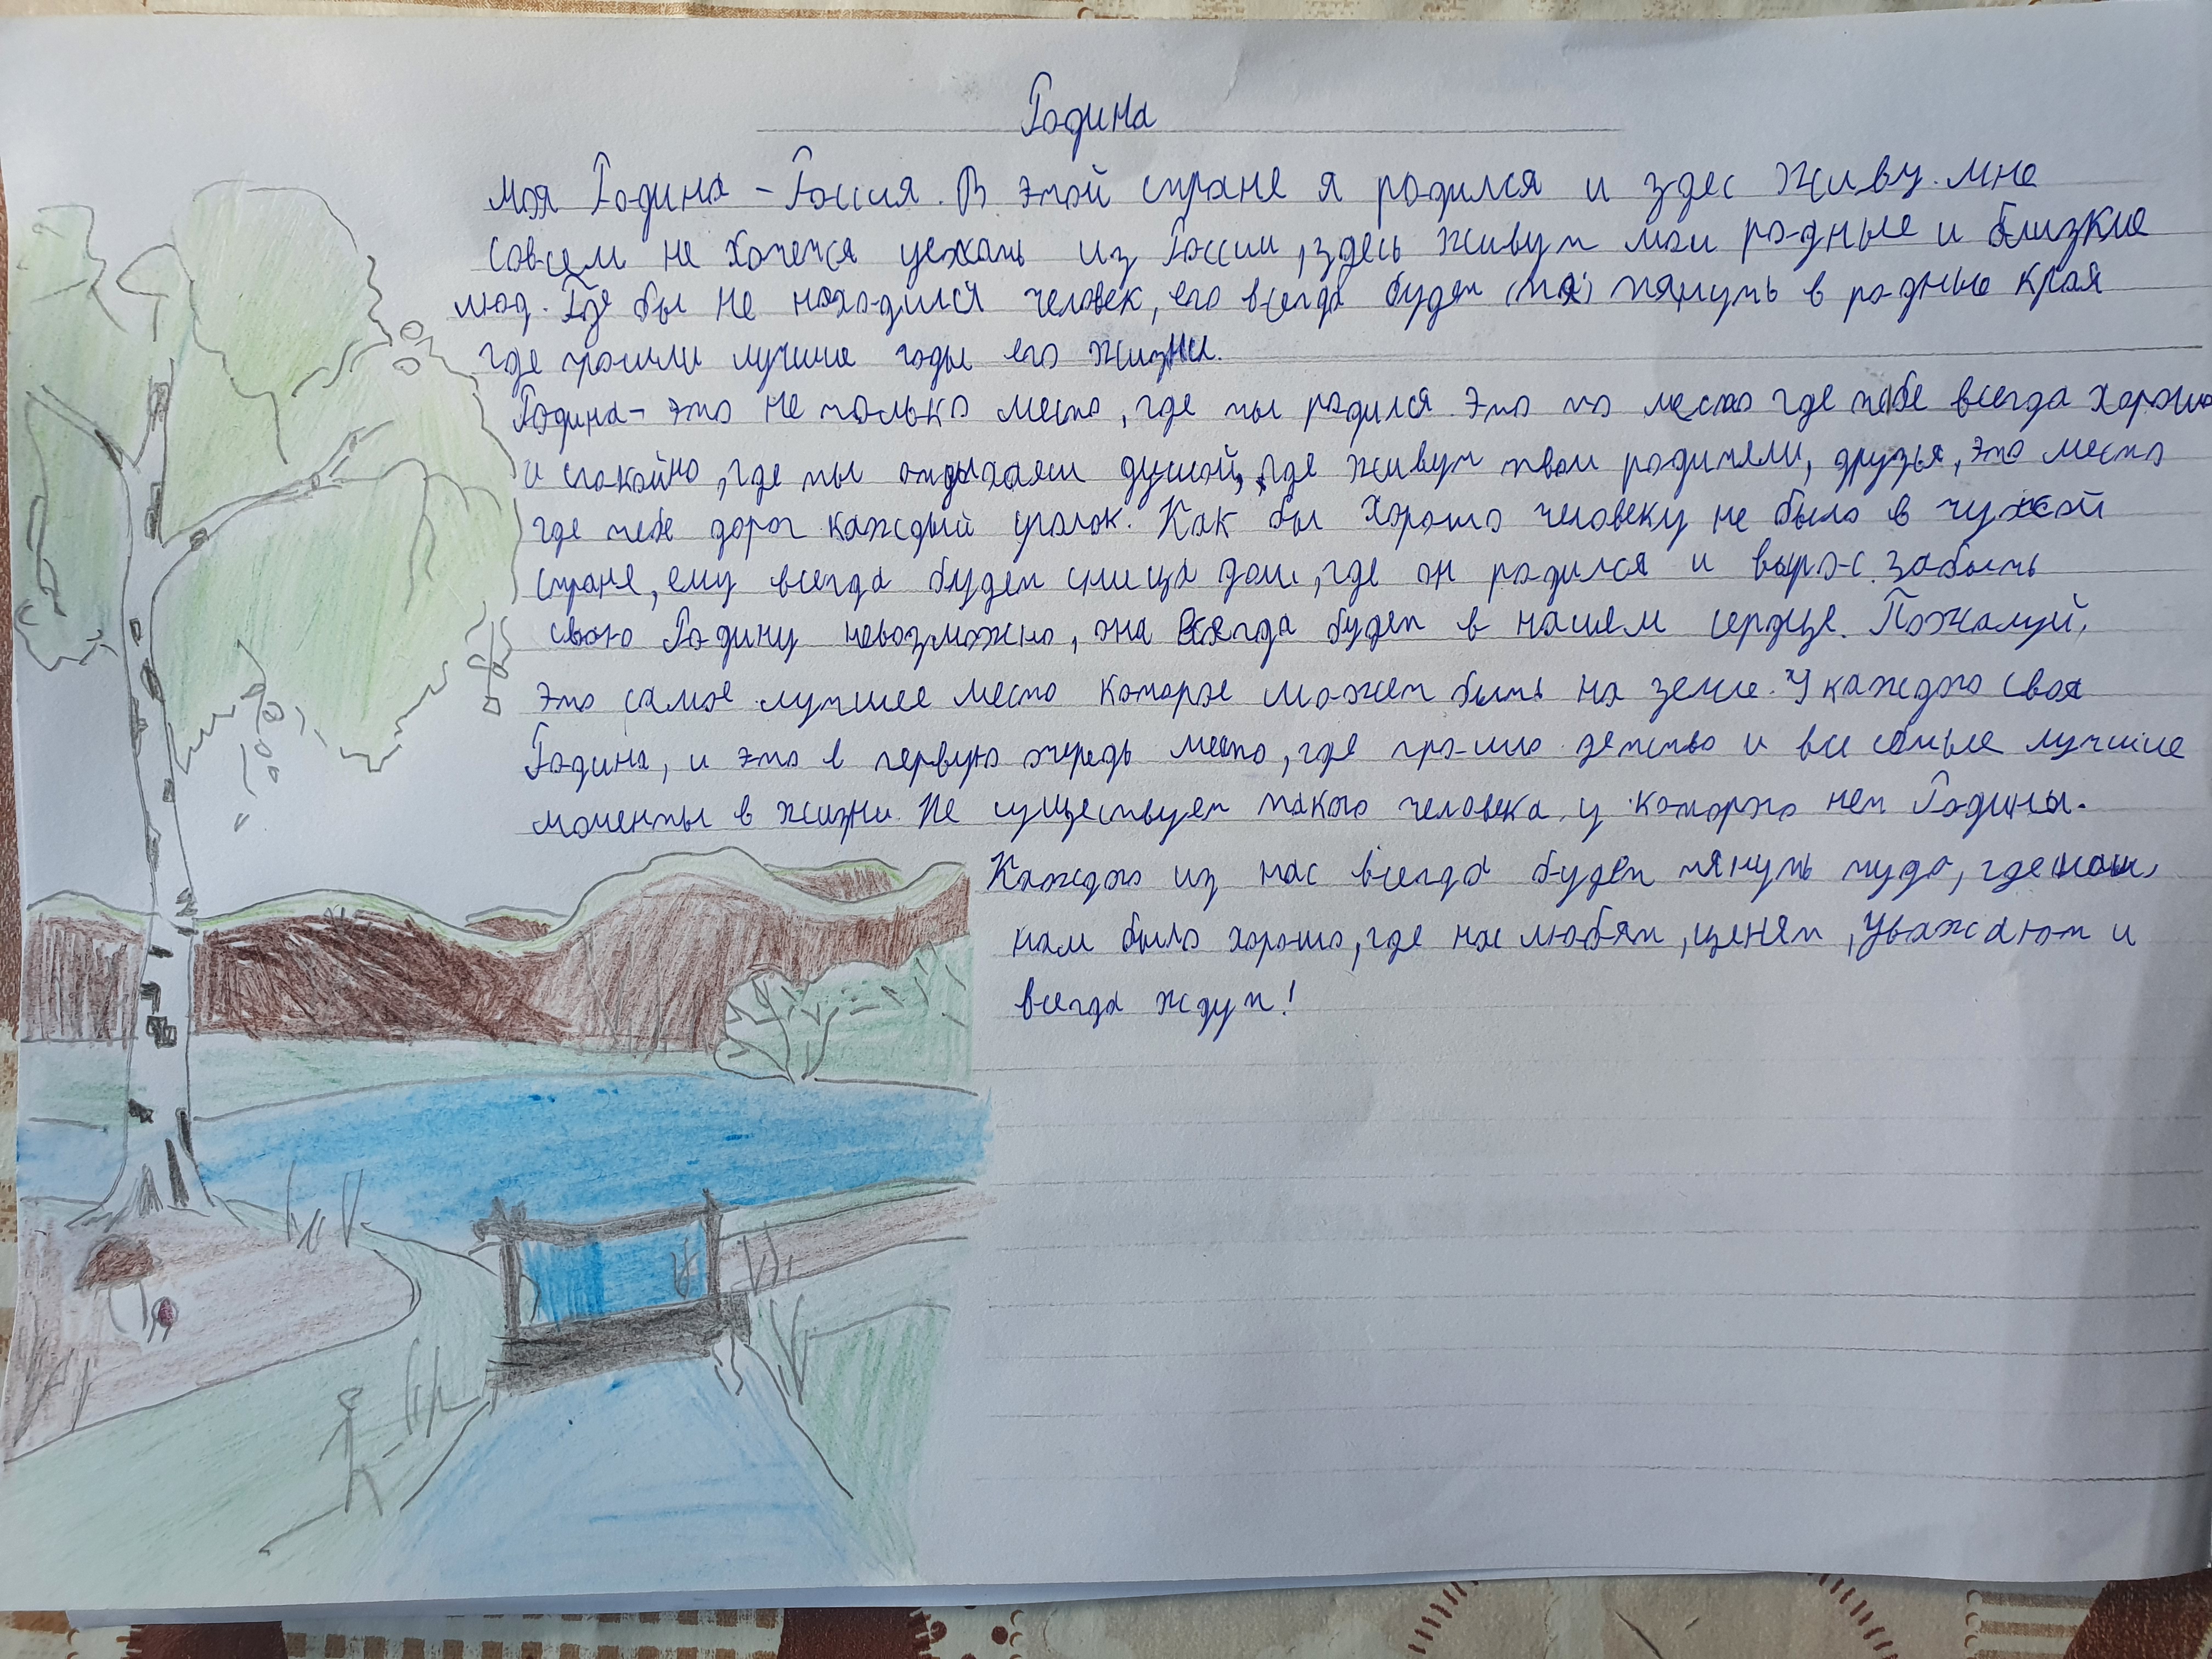 Родина
Моя Родина - Россия. В этой стране я родился и здес живу. мне
совсем не хочется уехать из России, здесь живут мои родные и близкие
люд. Где бы не находился человек, его всегда будет (тя) тянуть в родные края
где прошли лучшие годы его жизни.
Родина - это не только место, где ты родился. Это то место где тебе всегда хорошо
и спокойно, где ты отдыхаеш душой, где живут твои родители, друзья, это место
где тебе дорог каждый уголок. Как бы хорошо человеку не было в чужой
стране, ему всегда будет дом, где он родился и вырос. забыть
свою Родину невозможно, она всегда будет в нашем сердце. Пожалуй,
это самое лучшее место которое может быть на земле. У каждого своя
Родина, и это в первую очередь место, где прошло детство и все самые лучшие
моменты в жизни. Не существует такого человека у которого нет Родины.
Каждого из нас всегда будет тянуть туда, где
нам было хорошо, где нас любят, ценят, уважают и
всегда ждут!